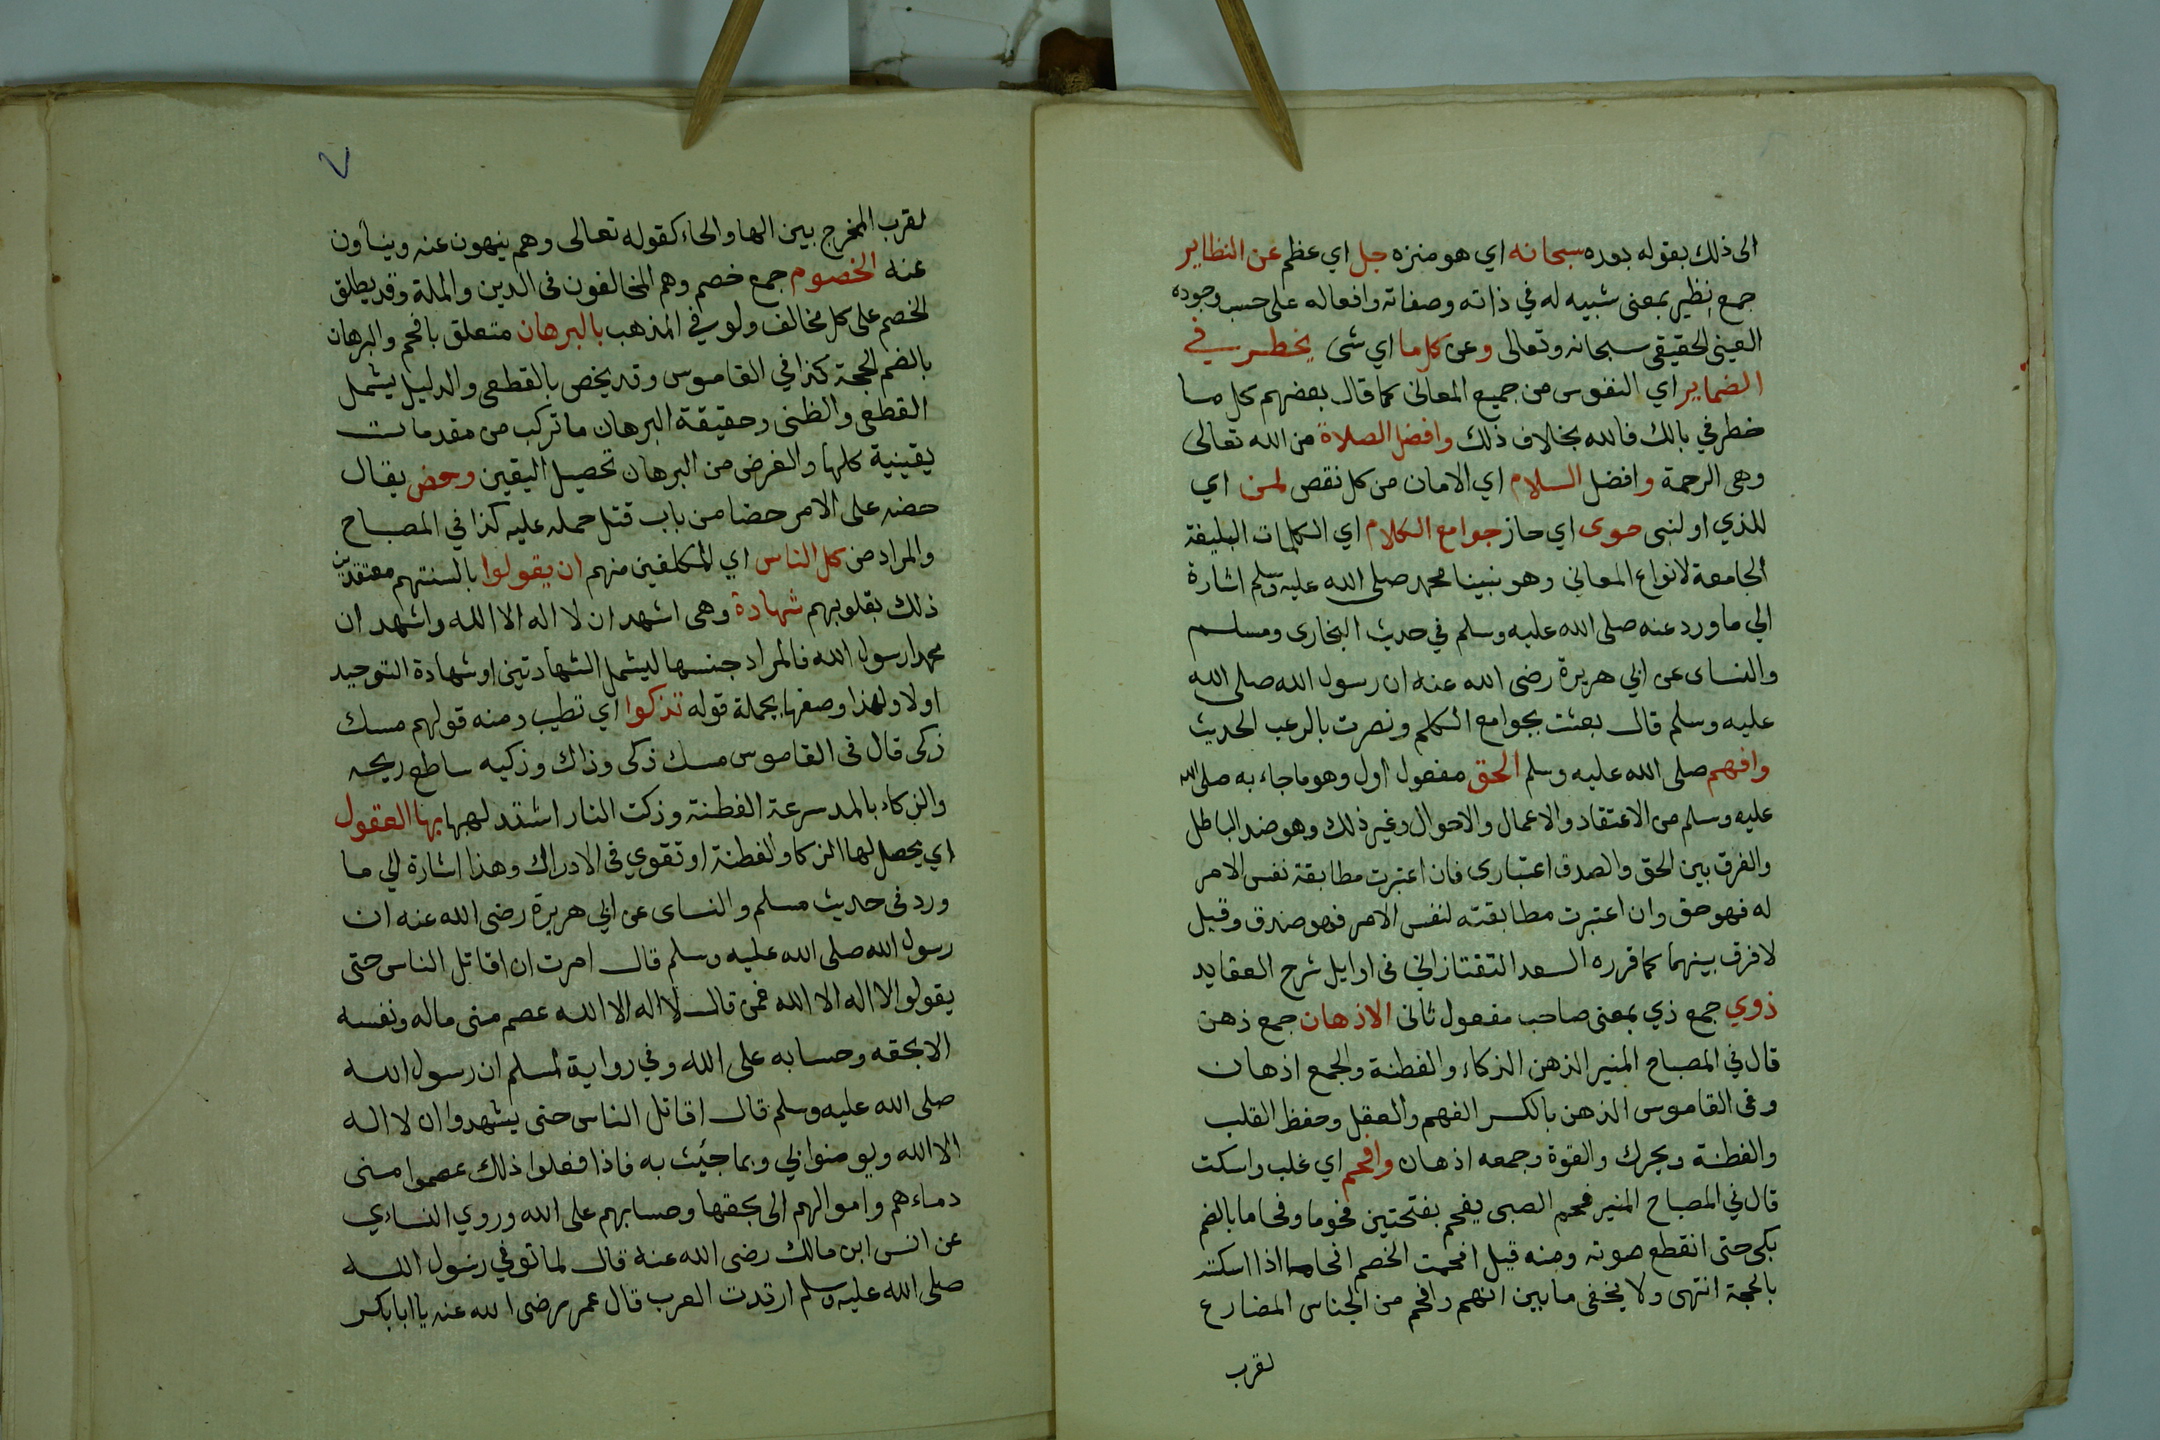 الى ذلك بقوله بعده سبحانه اي هو منزه جل اي عظم عن النظاير
جمع نظير بمعنى شبيه له في ذاته وصفاته وافعاله على حسب وجوده
العيني الحقيقي سبحانه وتعالى وعن كل ما اي شى يخطر في
الضماير اي النفوس من جميع المعاني كما قال بعضهم كل ما
خطر في بالك فالله بخلاف ذلك وافضل الصلاة من الله تعالى
وهى الرحمة وافضل السلام اي الامان من كل نقص لمن اي
للذي او لنبى حوى اي حاز جوامع الكلام اي الكلمات البليغة
الجامعة لانواع المعاني وهو نبينا محمد صلى الله عليه وسلم اشارة
الي ما ورد عنه صلى الله عليه وسلم في حديث البخارى ومسلم
والنساى عن ابي هريرة رضى الله عنه ان رسول الله صلى الله
عليه وسلم قال بعثت بجوامع الكلم ونصرت بالرعب الحديث
وافهم صلى الله عليه وسلم الحق مفعول اول وهو ما جاء به صلى الله
عليه وسلم من الاعتقاد والاعمال والاحوال وغير ذلك وهو ضد الباطل
والفرق بين الحق والصدق اعتبارى فان اعتبرت مطابقة نفس الامر
له فهو حق وان اعتبرت مطابقته لنفس الامر فهو صدق وقيل
لا فرق بينهما كما قرره السعد التفتازاني فى اوايل شرح العقايد
ذوي جمع ذي بمعنى صاحب مفعول ثانى الاذهان جمع ذهن
قال في المصباح المنير الذهن الذكاء والفطنة والجمع اذهان
وفى القاموس الذهن بالكسر الفهم والعقل وحفظ القلب
والفطنة ويحرك والقوة وجمعه اذهان وافحم اي غلب واسكت
قال في المصباح المنير فحم الصبى يفحم بفتحتين فحوما وفحاما بالضم
بكى حتى انقطع صوته ومنه قيل افحمت الخصم افحاما اذا اسكته
بالحجة انتهى ولا يخفى ما بين افهم وافحم من الجناس المضارع
لقرب
٧
لقرب المخرج بين الها والحاء كقوله تعالى وهم ينهون عنه وينأون
عنه الخصوم جمع خصم وهم المخالفون فى الدين والملة وقد يطلق
الخصم على كل مخالف ولو في المذهب بالبرهان متعلق بافحم والبرهان
بالضم الحجة كذا في القاموس وقد يخص بالقطعى والدليل يشمل
القطعى والظنى وحقيقة البرهان ما تركب من مقدمات
يقينية كلها والغرض من البرهان تحصيل اليقين وحض يقال
حضه على الامر حضا من باب قتل حمله عليه كذا في المصباح
والمراد من كل الناس اي المكلفين منهم ان يقولوا بالسنتهم معتقدين
ذلك بقلوبهم شهادة وهى اشهد ان لا اله الا الله واشهد ان
محمدا رسول الله فالمراد جنسها ليشمل الشهادتين او شهادة التوحيد
اولا ولهذا وصفها بجملة قوله تذكوا اي تطيب ومنه قولهم مسك
زكى قال فى القاموس مسك ذكى وذاك وزكيه ساطع ريحه
والذكاء بالمد سرعة الفطنة وزكت النار اشتد لهبها بها العقول
اي يحصل لها الزكا والفطنة او تقوي فى الادراك وهذا اشارة الي ما
ورد فى حديث مسلم والنساى عن ابي هريرة رضى الله عنه ان
رسول الله صلى الله عليه وسلم قال امرت ان اقاتل الناس حتى
يقولوا لا اله الا الله فمن قال لا اله الا الله عصم منى ماله ونفسه
الا بحقه وحسابه على الله وفي رواية لمسلم ان رسول الله
صلى الله عليه وسلم قال اقاتل الناس حتى يشهدوا ان لا اله
الا الله ويومنوا بي وبما جئيت به فاذا فعلوا ذلك عصموا منى
دماءهم واموالهم الى بحقها وحسابهم على الله وروي النساءي
عن انس ابن مالك رضى الله عنه قال لما توفي رسول الله
صلى الله عليه وسلم ارتدت العرب قال عمر رضى الله عنه يا ابا بكر